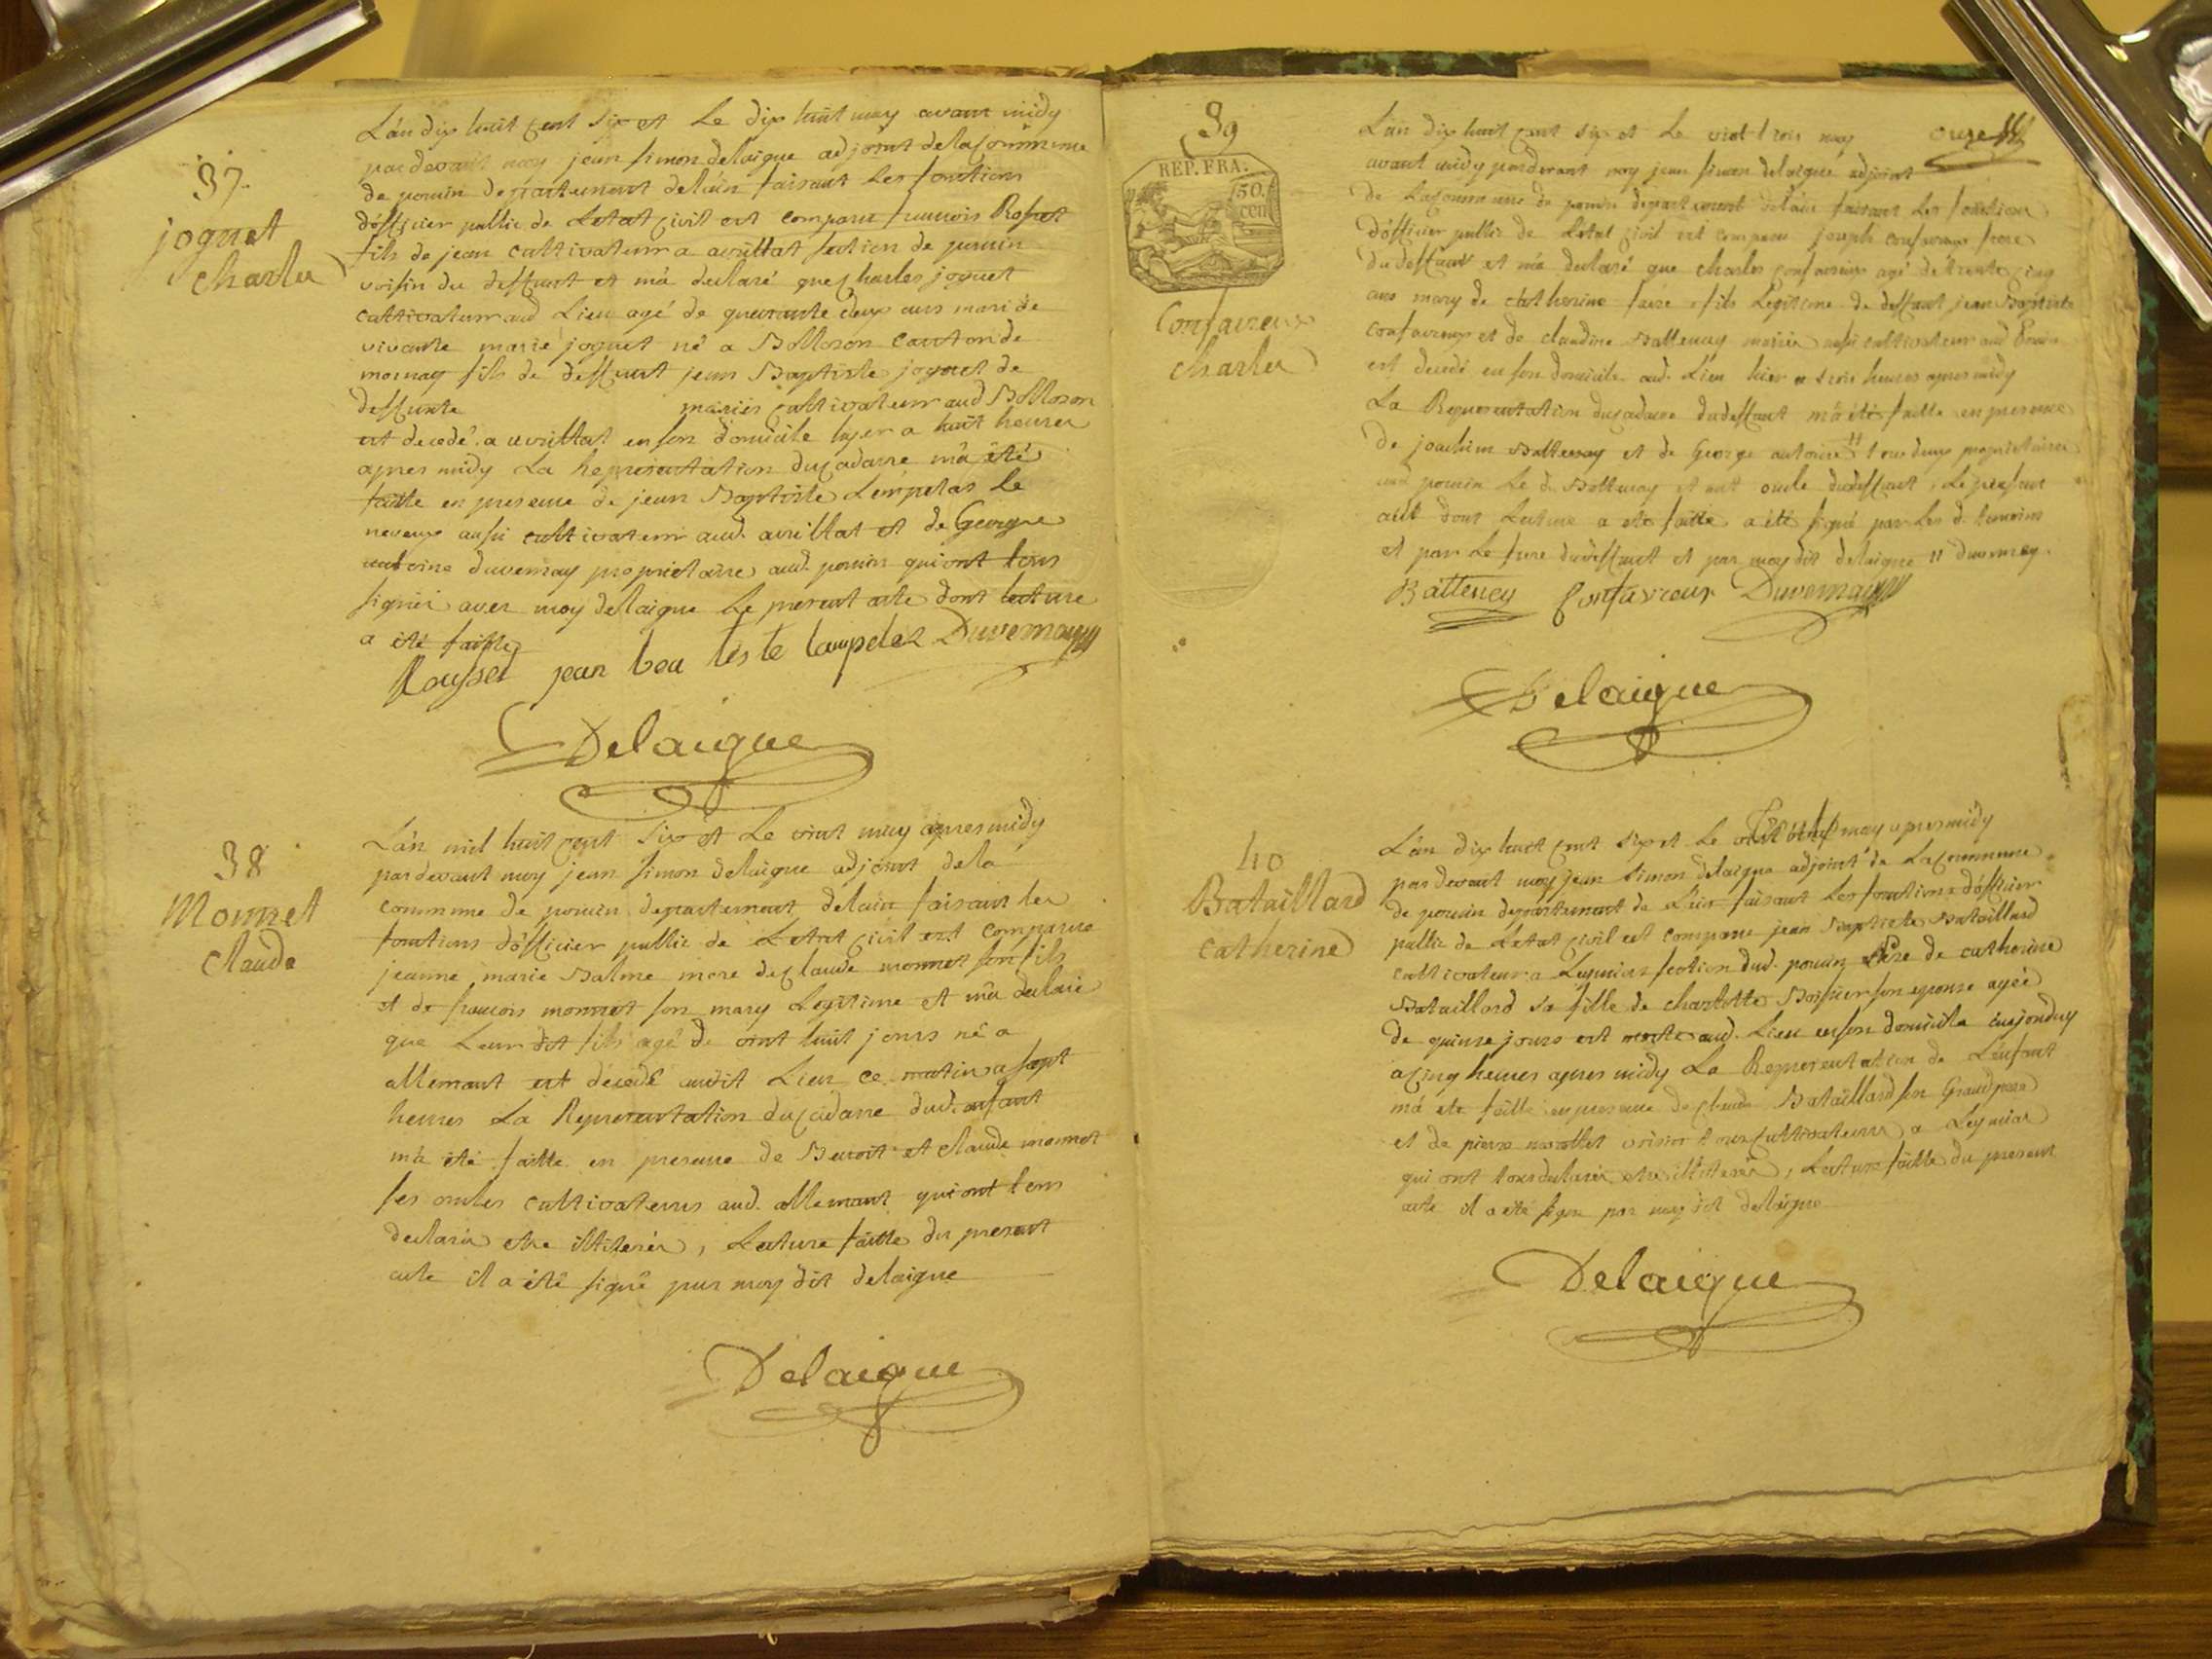 37.
joguet
charles
L'an dix huit cent six et le dix huit may avant midy
pardevant moy jean simon delaigue adjoint de la commune
de poncin departement de l'ain faisant les fonctions
d'officier public de Letat civil est comparu francois Rosset
fils de jean cultivateur a avrillat section de poncin
voisin du deffunt et m'a declaré que charles joguet
cultivateur aud Lieu agé de quarante deux ans mari de
vivante marie joguet né a Bolloson canton de
moinay fils de deffunt jean Baptiste joguet de
deffunte mariés cultivateur aud Bolloson
est decedé a avrillat en son domicile hyer a huit heures
apres midy La Representation du cadavre m'a été
faitte en presence de jean Baptiste Lempelas le
neveux aussi cultivateur aud. avrillat et de George
antoine duvernay proprietaire aud. poncin qui ont tous
signés avec moy delaigue le present acte dont lecture
a été faitte
Rousset jean bea tis te lampelas Duvernay
Delaigue
38
Monnet
claude
L'an mil huit cent six et Le vint may apres midy
par devant moy jean simon delaigue adjoint de la
commune de poncin departement delain faisant les
fonctions d'officier public de Letat civil est comparue
jeanne marie Balme mere de claude monnet son fils
et de francois monnet son mary Legitime et m'a declaré
que Leur dit fils agé de vint huit jours né a
allemant est decedé audit Lieu ce matin a sept
heures La Representation du cadavre dud. enfant
m'a été faitte en presence de Benoit et claude monnet
ses oncles cultivateurs aud. allemant qui ont tous
declarés etre illiterés, Lecture faitte du present
acte il a été signé par moy dit delaigue
Delaigue
39
REP. FRA.
50.
cen
Confavreux
charles
L'an dix huit cent six et Le vint trois may onze
avant midy pardevant moy jean simon delaigue adjoint
de La commune de poncin departement delain faisant Les fonction
d'officier public de Letat civil est comparu joseph confavreux frere
du deffunt et m'a declaré que charles confavreux agé de trente cinq
ans mary de catherine faure fils Legitime de deffunt jean Baptiste
confavreux et de claudine Battenay mariés aussi cultivateur aud Poncin
est decedé en son domicile aud. Lieu hier a trois heures apres midy
La Representation du cadavre du deffunt m'a été faitte en presence
de joachim Battenay et de George antoine " tous deux proprietaires
aud poncin Le d. Battenay est ont oncle du deffunt, Le present
act dont Lecture a été faitte a été signé par Les d. temoins
et par Le frere du deffunt et par moy dit delaigue " duvernay.
Batteney Confavreux Duvernay
Delaigue
40
Bataillard
catherine
L'an dix huit cent six et Le vint may apres midy
par devant moy jean simon delaigue adjoint de La commune
de poncin departement de L'ain faisant Les fonctions d'officier
public de Letat civil est comparu jean Baptiste Bataillard
cultivateur a Leymiat section dud. poncin Pere de catherine
Bataillard sa fille de charlotte Boissier son epouse agée
de quinse jours est morte aud. Lieu en son domicile aujourduy
a cinq heures apres midy La Representation de L'enfant
m'a ete faitte en presence de claude Bataillard son Grand pere
et de pierre voisin tous cultivateurs a Leymiat
qui ont tous declarés etre illiterés, Lecture faitte du present
acte il a été signé par moy dit delaigue
Delaigue